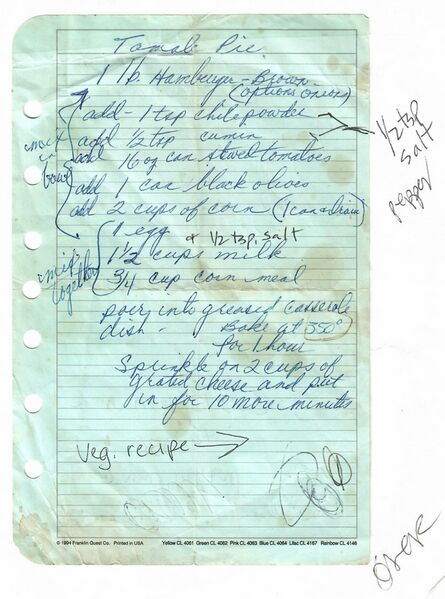 Tamale Pie
1 lb. Hamburger - Brown
(options onions)
add - 1 tsp chile powder
add 1/2 tsp cumin
add 16 oz can stewed tomatoes
add 1 can black olives
add 2 cups of corn (1 can & drain)
mix in bowl
1/2 tsp salt
pepper
1 egg & 1/2 tsp. salt
1 1/2 cups milk
3/4 cup corn meal
mix together
pour into greased casserole
dish - Bake at 350°
for 1 hour
Sprinkle on 2 cups of
grated cheese and put
in for 10 more minutes
Veg. recipe →
© 1994 Franklin Quest Co. Printed in USA Yellow CL 4061 Green CL 4062 Pink CL 4063 Blue CL 4064 Lilac CL 4167 Rainbow CL 4146